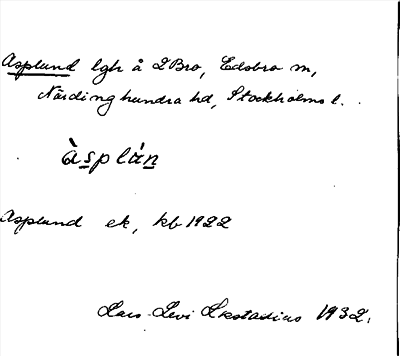 Asplund lgh å L Bro, Edsbro sn,
Närdinghundra hd, Stockholms l.
àsplán
Asplund ek, kb 1922
Lars-Levi Læstadius 1932.